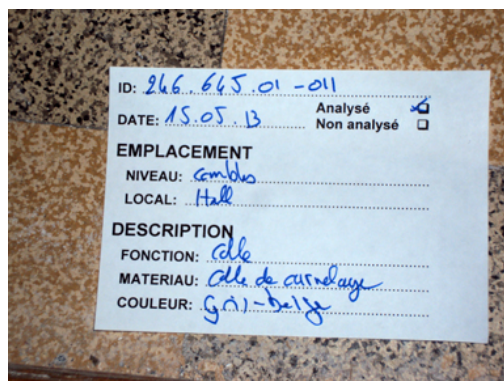 ID: 246.645.01-011
Analysé ☑
DATE: 15.05.13
Non analysé ☐
EMPLACEMENT
NIVEAU: combles
LOCAL: Hall
DESCRIPTION
FONCTION: colle
MATERIAU: colle de carrelage
COULEUR: Gris-beige